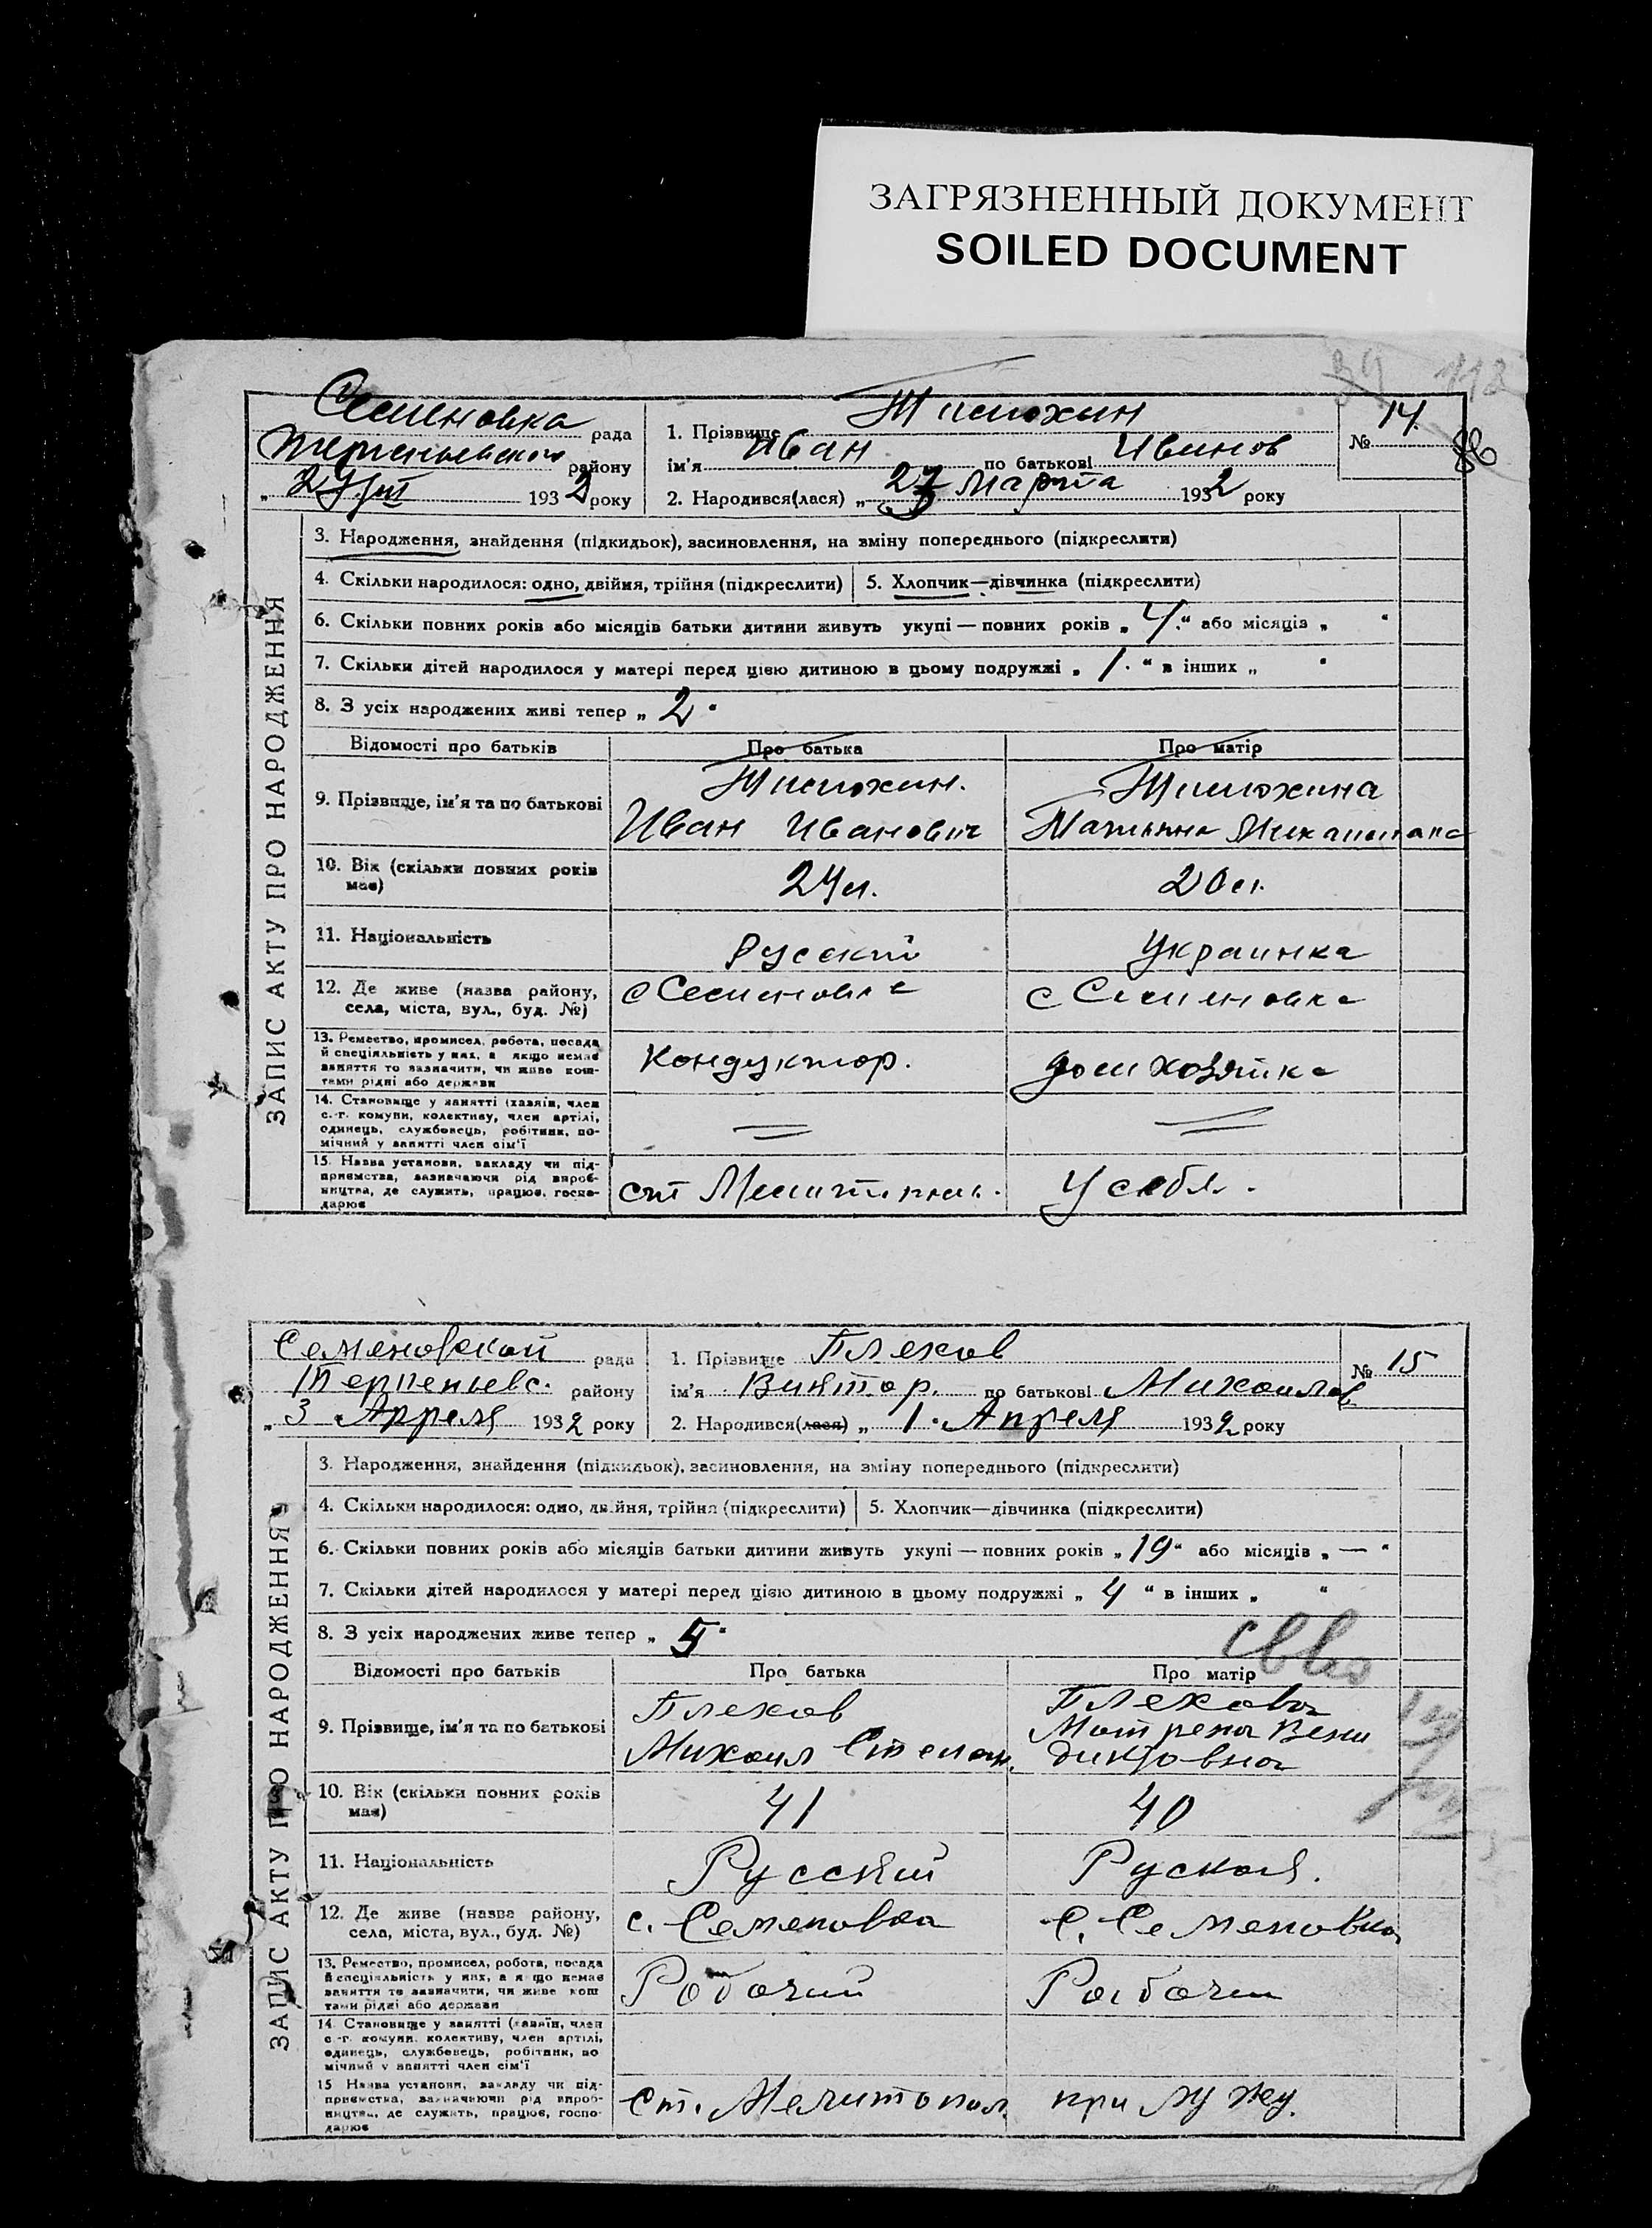 ЗАГРЯЗНЕННЫЙ ДОКУМЕНТ
SOILED DOCUMENT
ЗАПИС АКТУ ПРО НАРОДЖЕННЯ
Семеновка рада
району
193 2 року
1. Прізвище Тимохин
ім'я Иван по батькові Иванов
2. Народився(лася) „ 27 Марта 1932 року
№ 14
86
3. Народження, знайдення (підкидьок), засиновлення, на зміну попереднього (підкреслити)
4. Скільки народилося: одно, двійня, трійня (підкреслити) 5. Хлопчик—дівчинка (підкреслити)
6. Скільки повних років або місяців батьки дитини живуть укупі — повних років „ 4 “ або місяців „ “
7. Скільки дітей народилося у матері перед цією дитиною в цьому подружжі „ 1 “ в інших „ “
8. З усіх народжених живі тепер „ 2 “
Відомості про батьків Про батька Про матір
9. Прізвище, ім'я та по батькові
Тимохин. Тимохина
Иван Иванович Татьяна
10. Вік (скільки повних років має) 24 л. 20 л.
11. Національність Русский Украинка
12. Де живе (назва району, села, міста, вул., буд. №) с Семеновка с Семеновка
13. Ремество, промисел, робота, посада
й спеціяльність у них, а якщо немає
заняття то зазначити, чи живе кош-
тами рідні або держави
Кондуктор. дом хозяйка
14. Становище у занятті (хазяїн, член
с.-г. комуни, колективу, член артілі,
одинець, службовець, робітник, по-
мічний у занятті член сім'ї
15. Назва установи, закладу чи під-
приємства, зазначаючи рід вироб-
ництва, де служить, працює, госпо-
дарює
ст У себя.
ЗАПИС АКТУ ПРО НАРОДЖЕННЯ
Семеновской рада
Терпеньевс. району
„ 3 Апреля 1932 року
1. Прізвище Плехов
ім'я Виктор. по батькові Михаилов
2. Народився(лася) „ 1. Апреля 1932 року
№ 15
3. Народження, знайдення (підкидьок), засиновлення, на зміну попереднього (підкреслити)
4. Скільки народилося: одно, двійня, трійня (підкреслити) 5. Хлопчик—дівчинка (підкреслити)
6. Скільки повних років або місяців батьки дитини живуть укупі — повних років „ 19 “ або місяців „ — “
7. Скільки дітей народилося у матері перед цією дитиною в цьому подружжі „ 4 “ в інших „ “
8. З усіх народжених живе тепер „ 5 “
Відомості про батьків Про батька Про матір
9. Прізвище, ім'я та по батькові
Плехов Плехова
Михаил Степан. Мотрена Вени
диктовна
10. Вік (скільки повних років має) 41 40
11. Національність Русский Руская.
12. Де живе (назва району, села, міста, вул., буд. №) с. Семеновка с. Семеновка
13. Ремество, промисел, робота, посада
й спеціяльність у них, а якщо немає
заняття то зазначити, чи живе кош
тами рідні або держави
Робочий Рабочи
14. Становище у занятті (хазяїн, член
с.-г. комуни, колективу, член артілі,
одинець, службовець, робітник, по
мічний у занятті член сім'ї
15 Назва установи, закладу чи під-
приємства, зазначаючи рід вироб-
ництва, де служить, працює, госпо-
дарює
Ст. Мелитопол при мужу.